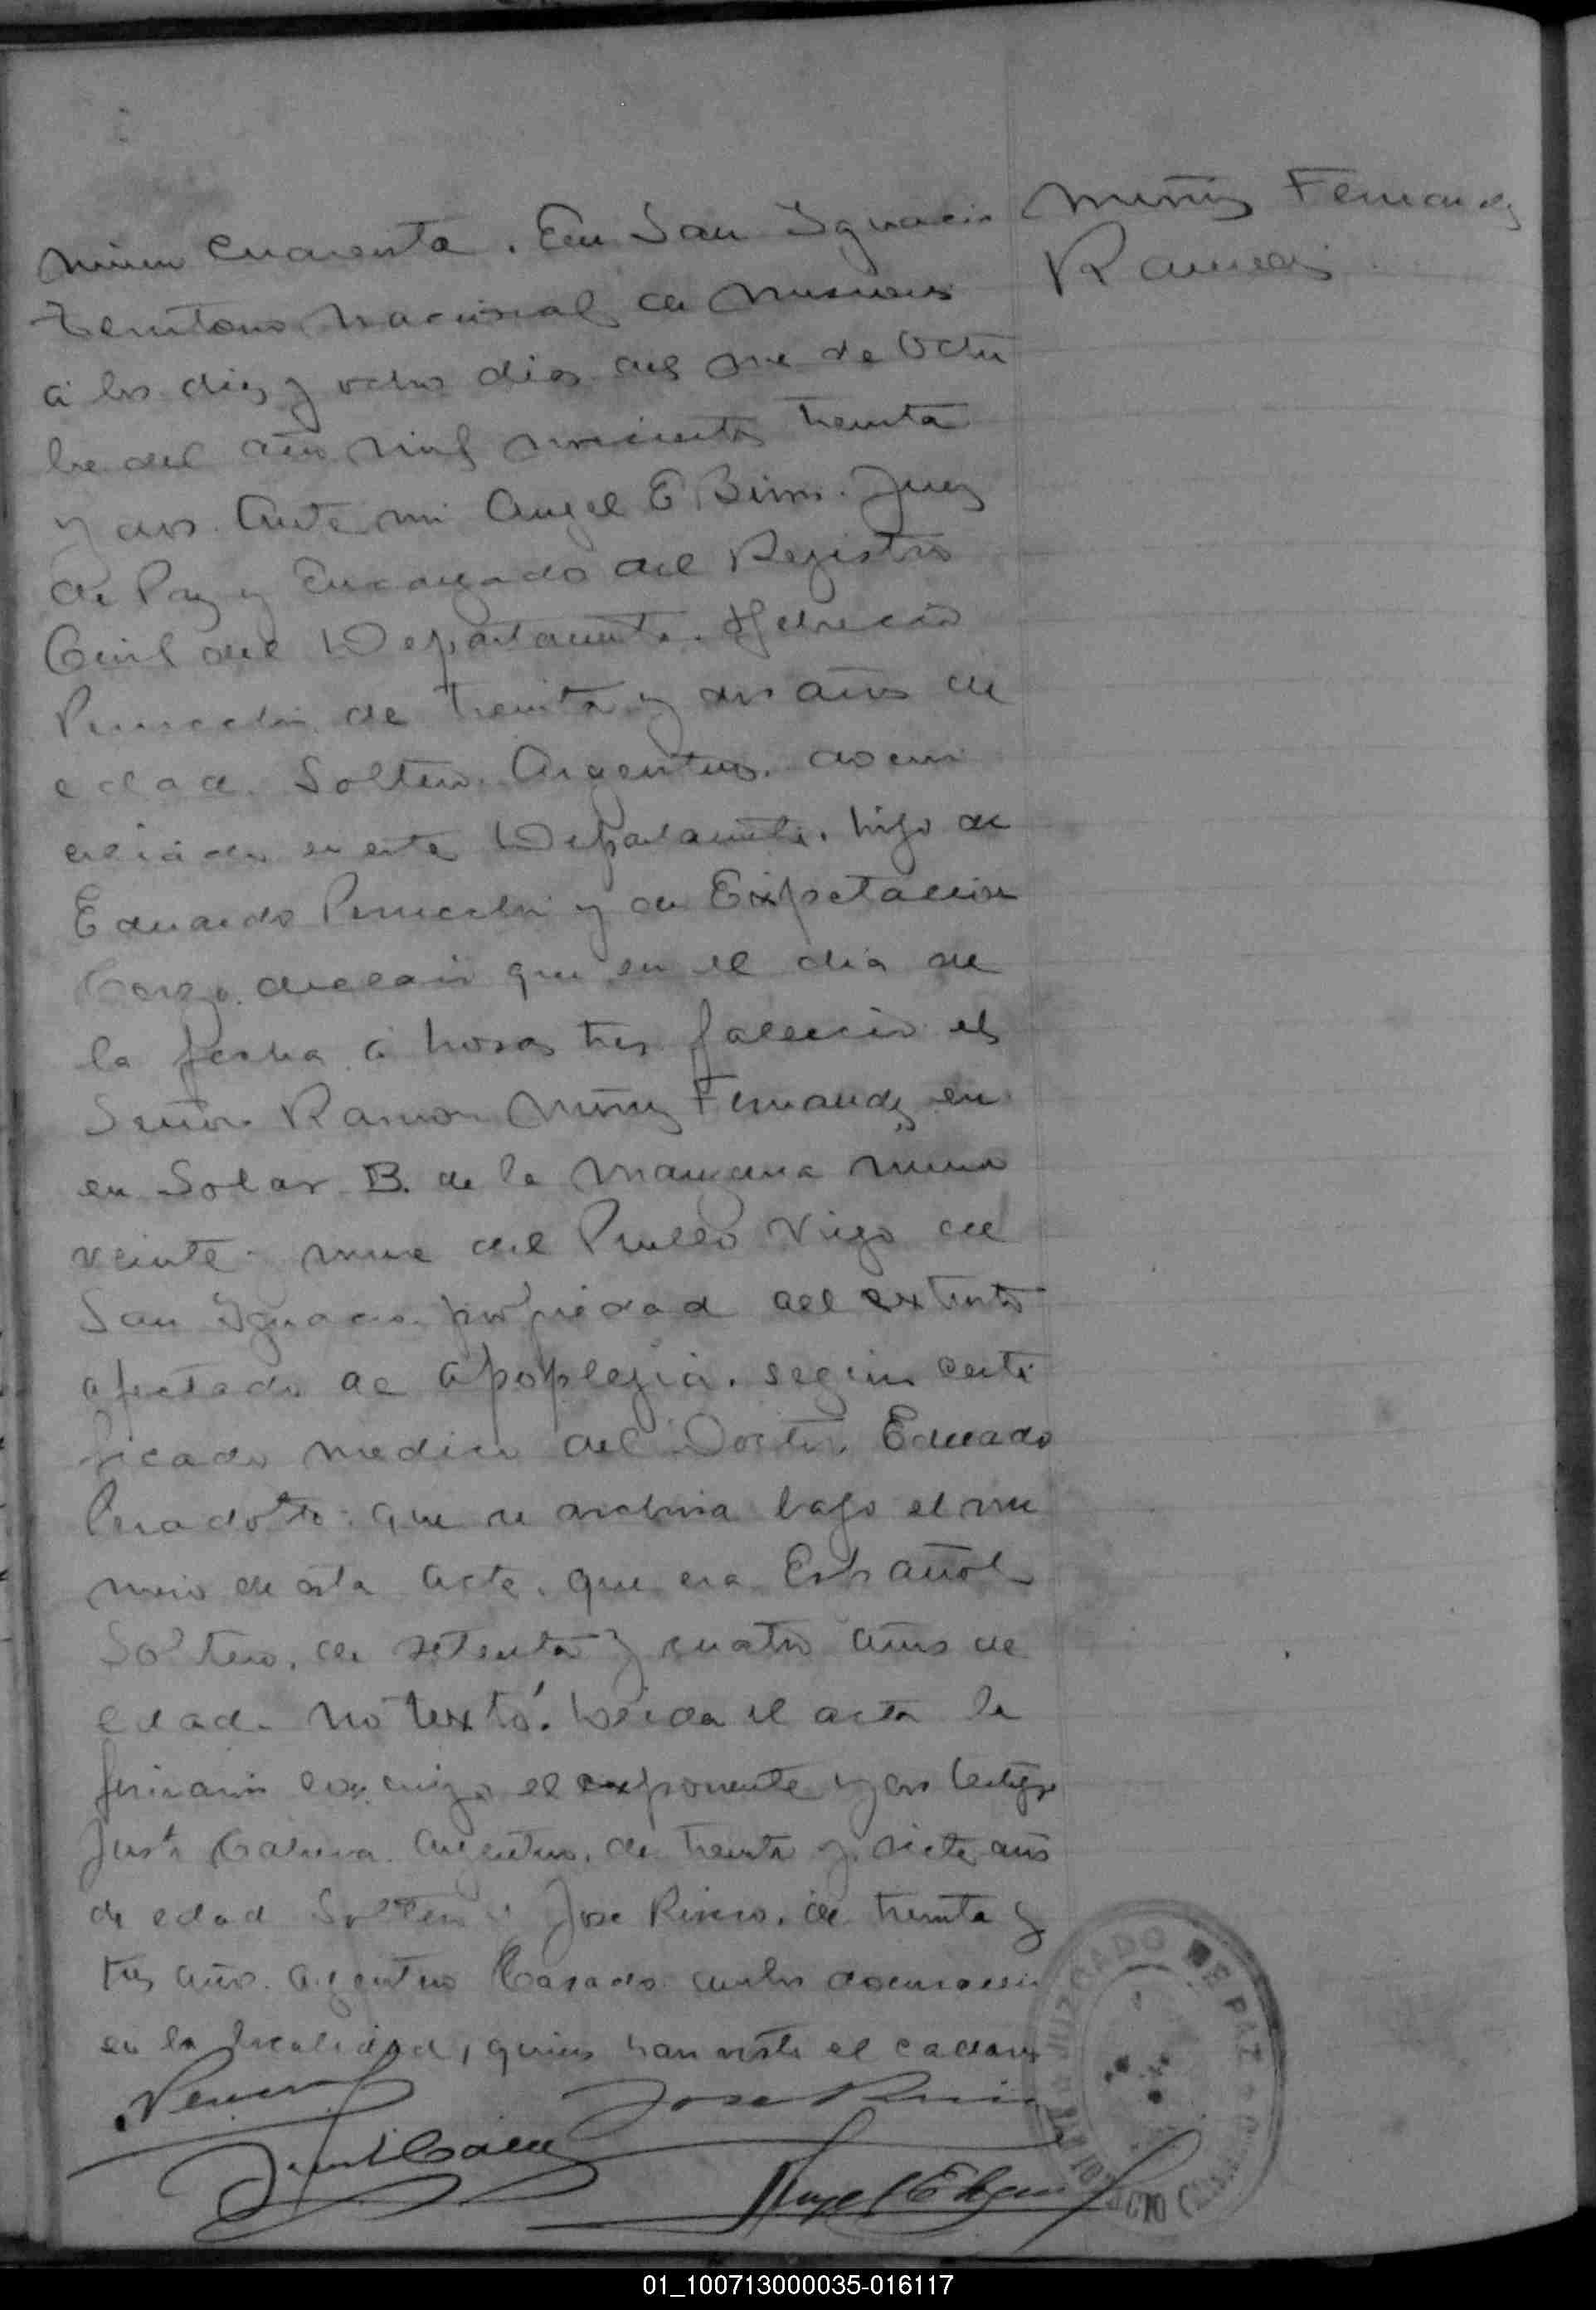 Muñiz Fernandez
Ramon
Numero cuarenta. En San Ygnacio
Territorio Nacional de Misiones
á los diez y ocho dias del mes de Octu
bre del año mil novecientos treinta
y dos. Ante mi Angel E. Juez
de Paz y Encargado del Registro
Civil del Departamento.
de treinta y dos años de
edad. Soltero. Argentino. domi
ciliado en este Departamento. hijo de
Eduardo y de Expetacion
declaró que en el dia de
la fecha á horas tres falleció el
Señor Ramon Muñiz Fernandez en
en Solar B. de la manzana numero
veinte nueve del Pueblo Viejo de
San Ygnacio propiedad del extinto
afectado de apoplegia. según certi
ficado medico del Doctor Eduardo
Peradotto que se archiva bajo el nu
mero de esta acta. que era Español
Soltero, de setenta y cuatro años de
edad. no textó. Leida el acta la
firmaron conmigo el exponente y dos testigos
Justo Argentino. de treinta y siete años
de edad Soltero y Jose Rivero. de treinta y
tres años. Argentino Casado. ambos domiciliados
en la localidad, quienes han visto el cadaver
Jose
Angel E
JUZGADO DE PAZ
01_100713000035-016117